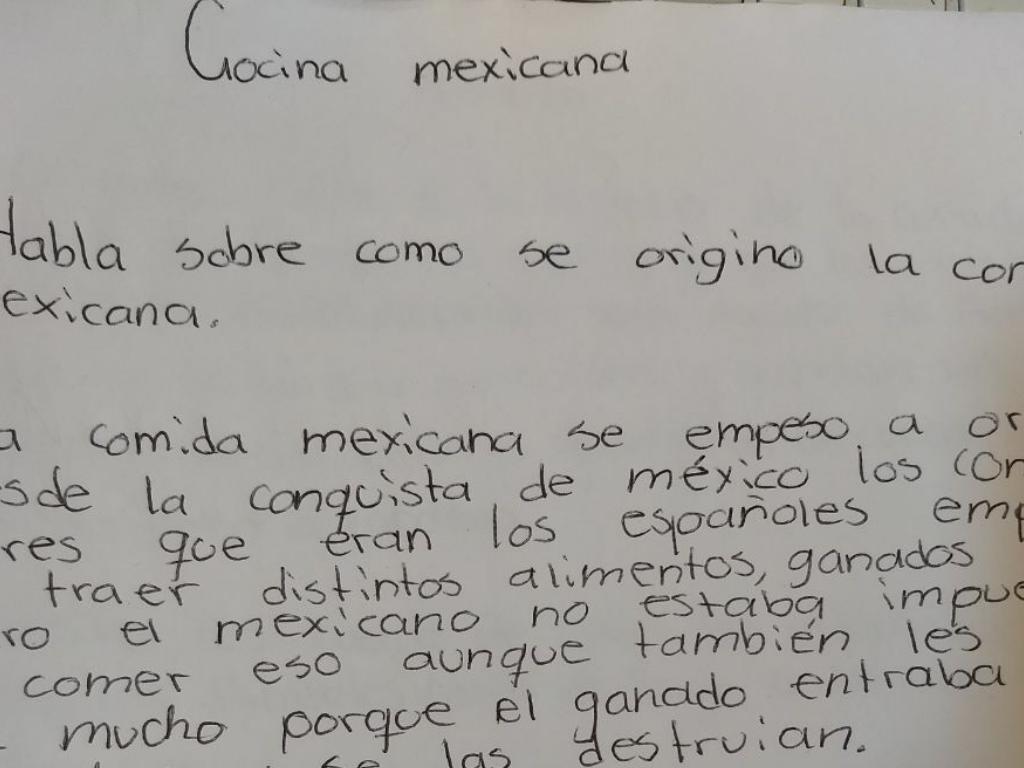 Cocina mexicana
Habla sobre como se origino la
exicana.
comida mexicana se empeso a
sde la conquista de méxico los
res que eran los españoles
traer distintos alimentos, ganados
ro el mexicano no estaba
comer eso aunque también les
mucho porque el ganado entraba
se las destruian.